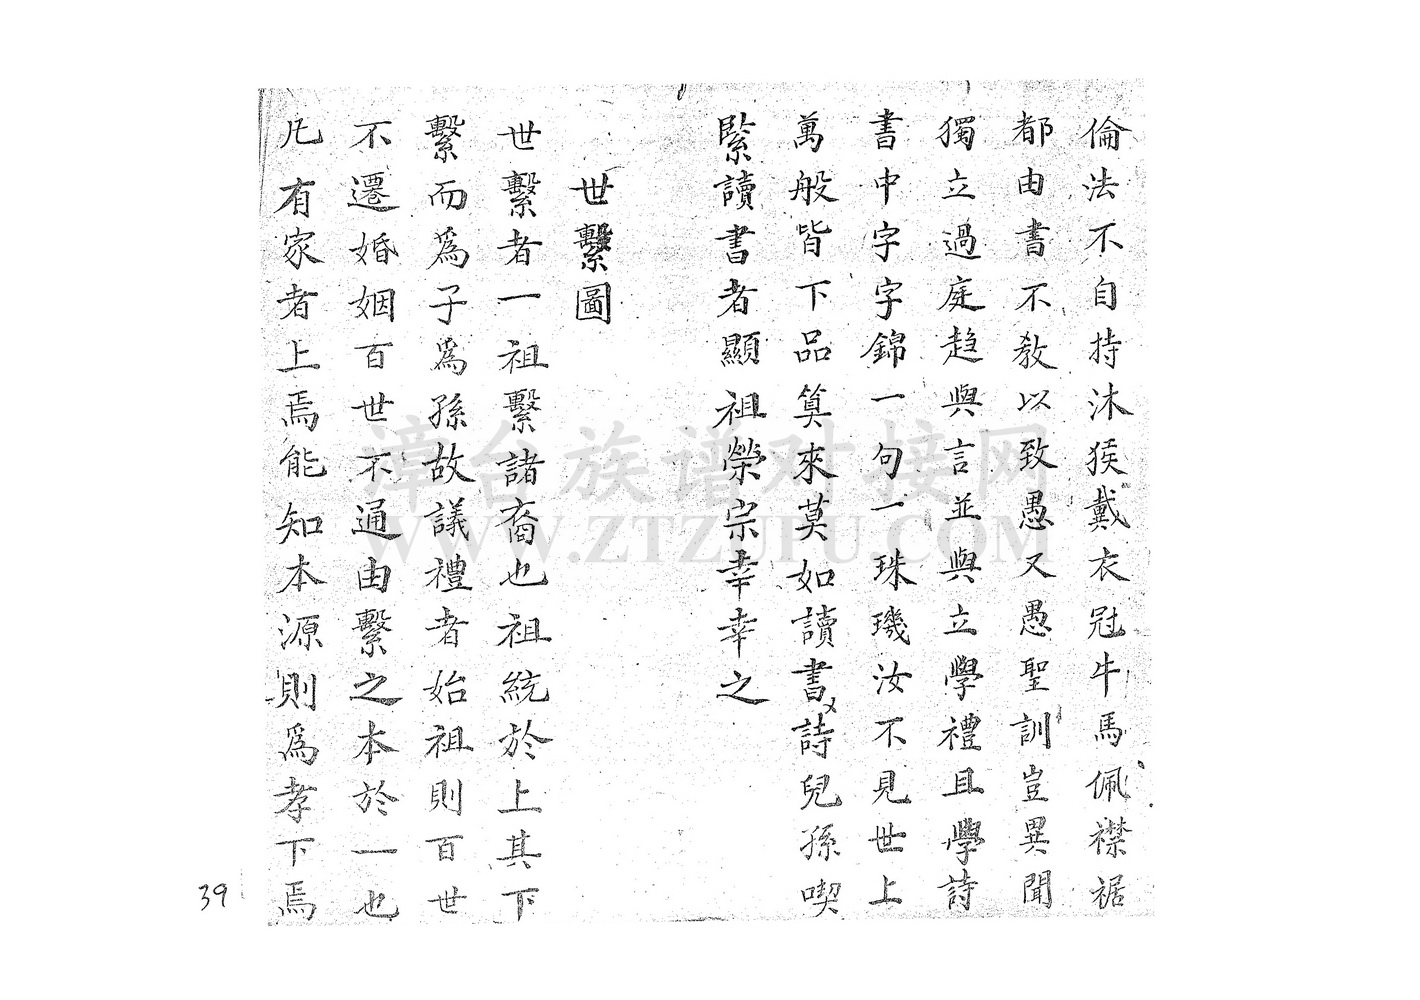 倫法不自持沐猴戴衣冠牛馬佩襟裾
都由書不教以致愚又愚聖訓豈異聞
獨立過庭趋與言並與立學禮且學詩
書中字字錦一句一珠璣汝不見世上
萬般皆下品算來莫如讀書詩兒孫喫
緊讀書者顯祖榮宗幸幸之
世繫圖
世繫者一祖繫諸裔也祖統於上其下
繫而為子為孫故議禮者始祖則百世
不遷婚姻百世不通由繫之本於一也
凡有家者上焉能知本源則為孝下焉
39
漳台族谱对接网
WWW.ZTZUPU.COM